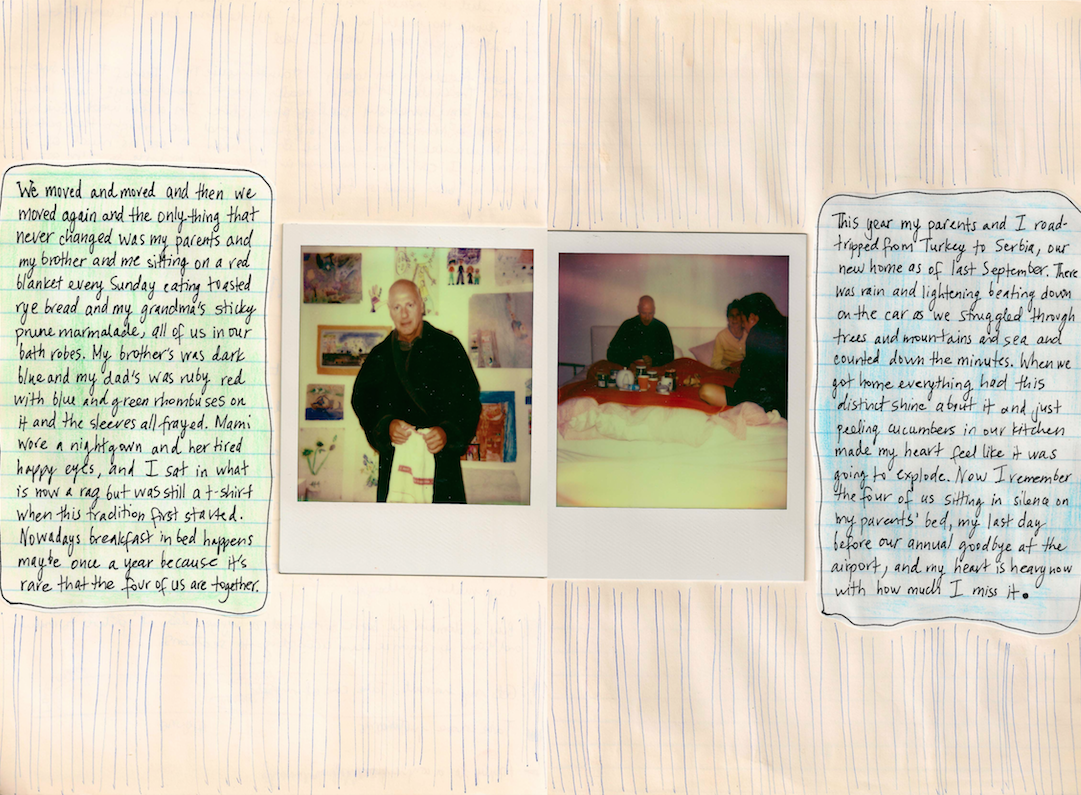 We moved and moved and then we
moved again and the only thing that
never changed was my parents and
my brother and me sitting on a red
blanket every Sunday eating toasted
rye bread and my grandma's sticky
prune marmalade, all of us in our
bath robes. My brother's was dark
blue and my dad's was ruby red
with blue and green rhombuses on
it and the sleeves all frayed. Mami
wore a nightgown and her tired
happy eyes, and I sat in what
is now a rag but was still a t-shirt
when this tradition first started.
Nowadays breakfast in bed happens
maybe once a year because it's
rare that the four of us are together.
This year my parents and I road-
tripped from Turkey to Serbia, our
new home as of last September. There
was rain and lightening beating down
on the car as we struggled through
trees and mountains and sea and
counted down the minutes. When we
got home everything had this
distinct shine about it and just
peeling cucumbers in our kitchen
made my heart feel like it was
going to explode. Now I remember
the four of us sitting in silence on
my parents' bed, my last day
before our annual goodbye at the
airport, and my heart is heavy now
with how much I miss it.